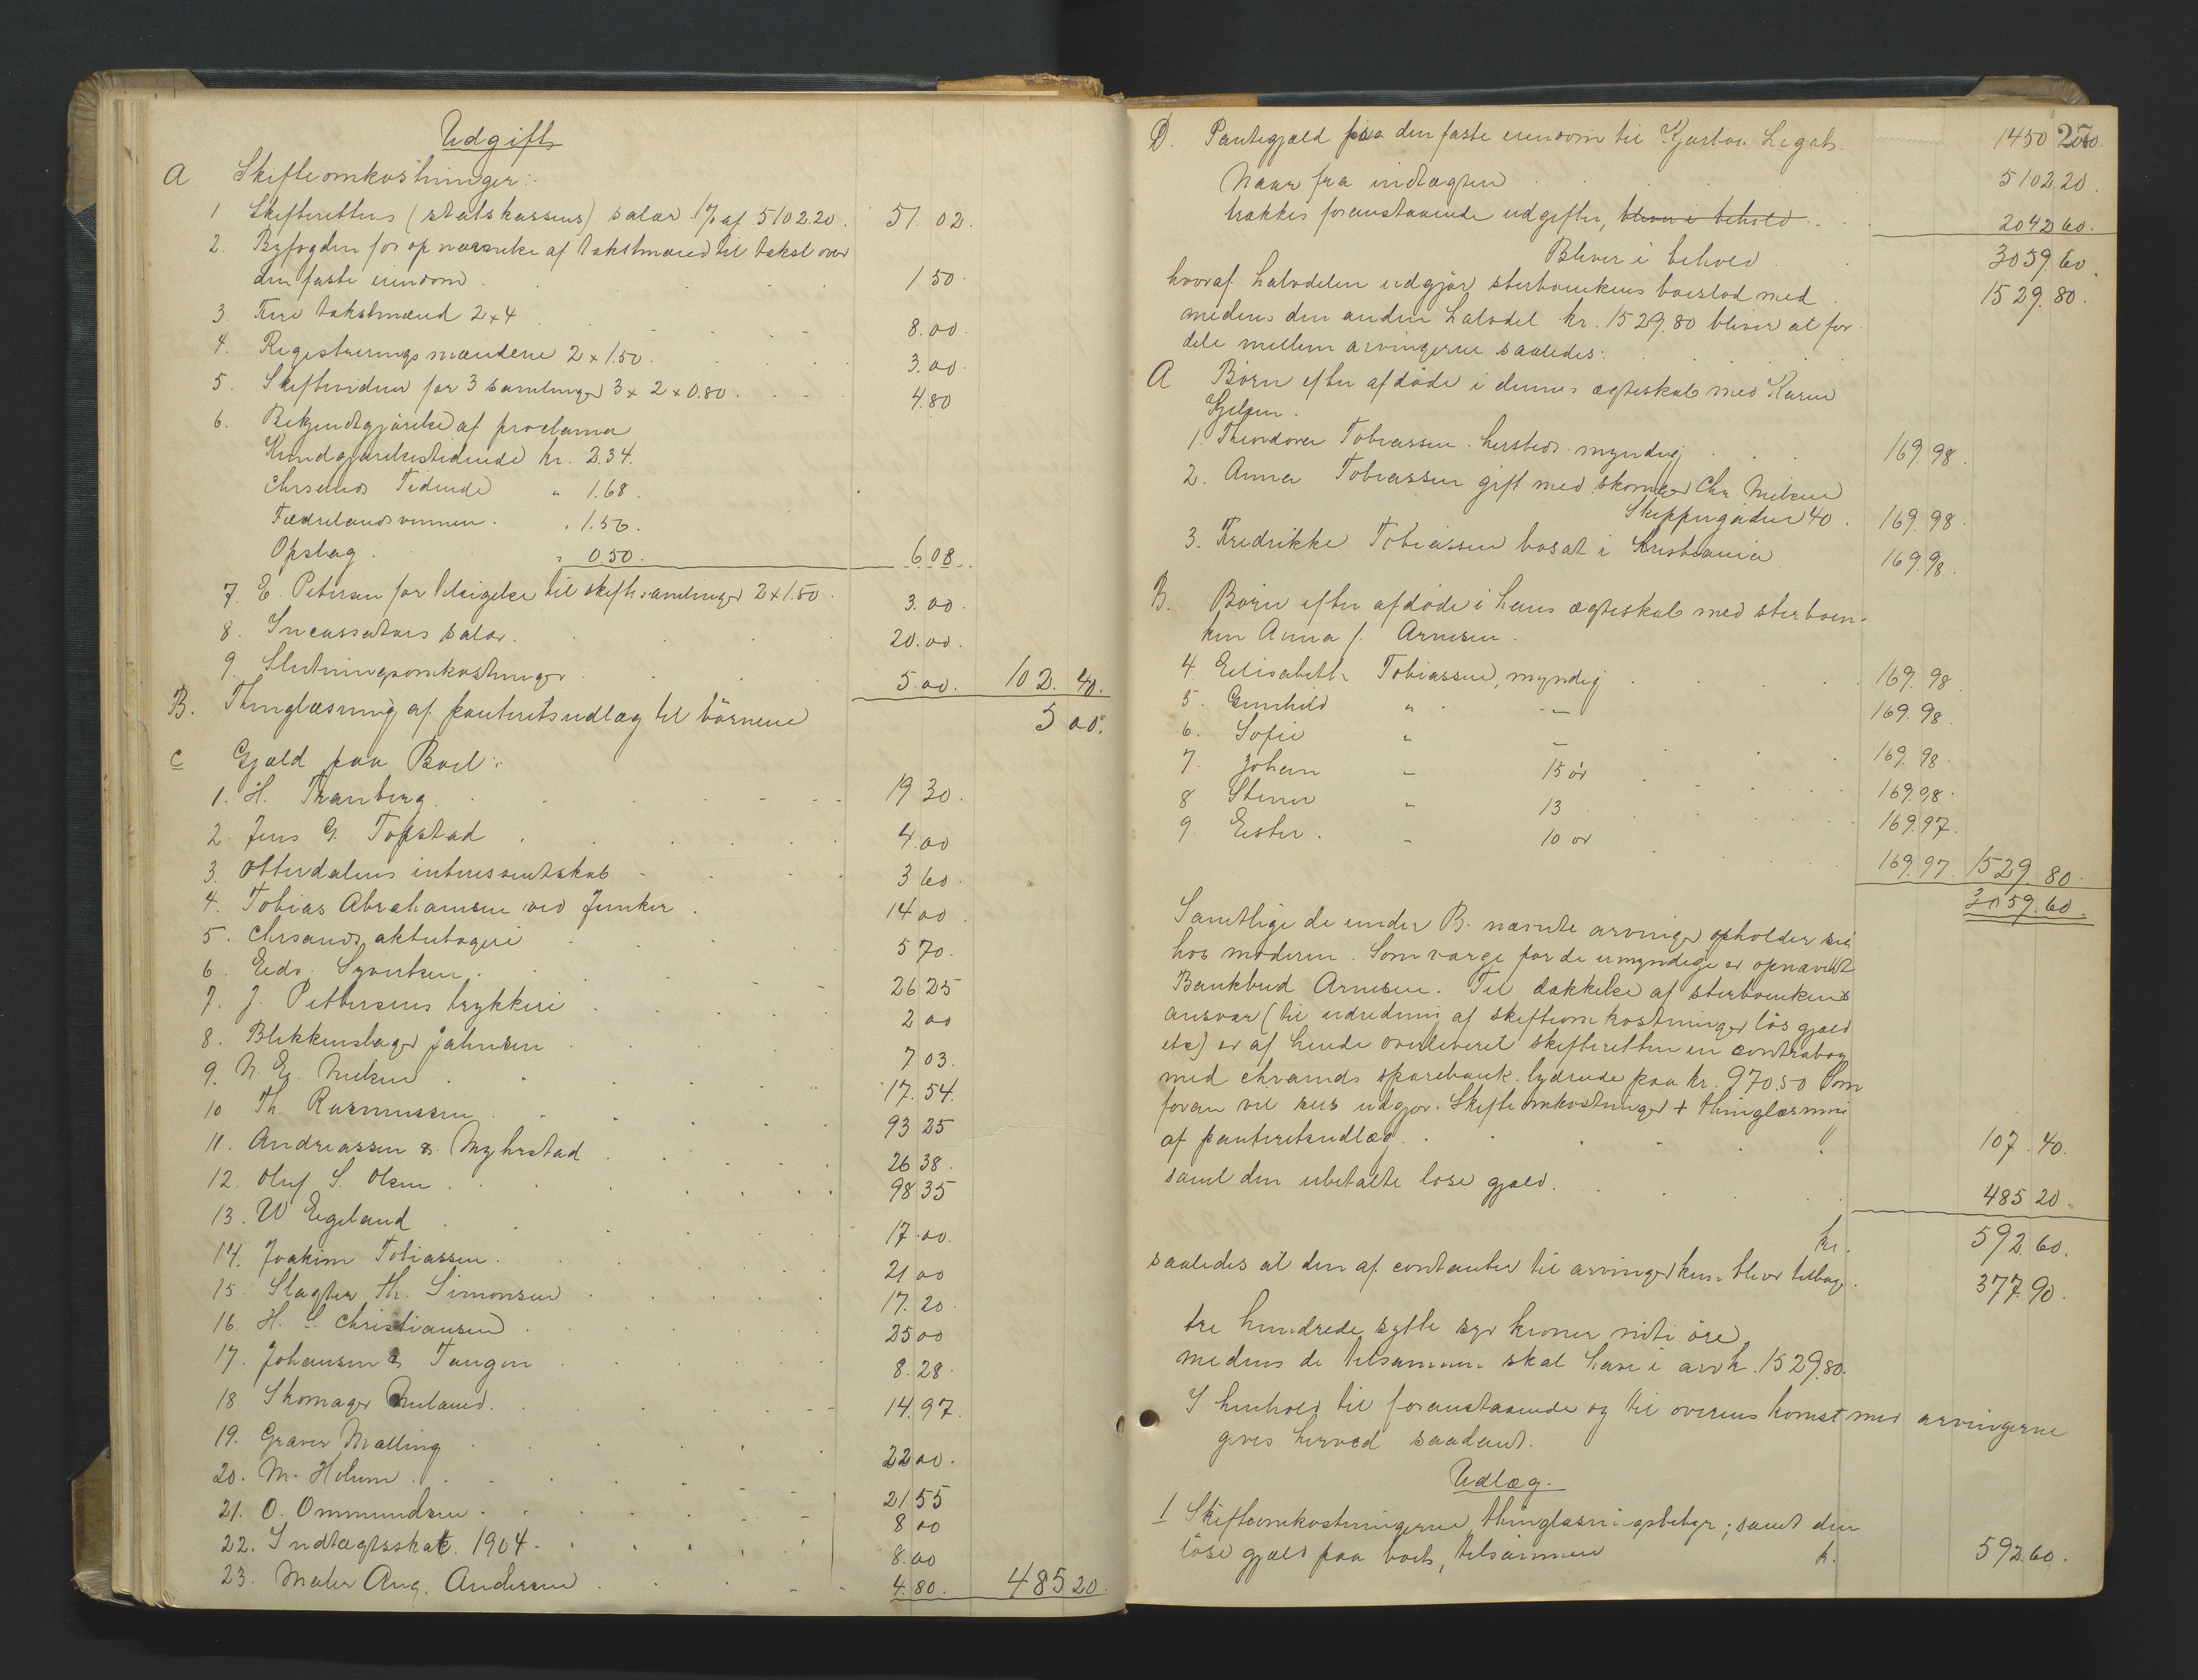 Udgift
A Skifteomkostninger:
1 Skifterettens (statskassens) salær 1% af 5102.20. 51.02.
2. Byfogden for opnævnelse af takstmænd til takst over
den faste eiendom 1 50.
3. Fire takstmænd 2x4 8.00.
4. Registreringsmændene 2 x 1.50. 3.00.
5. Skiftevidner for 3 samlinger 3 x 2 x 0.80. 4.80
6. Bekjendtgjørelse af proclama
Kundgjørelsestidende kr. 2.34.
Chrsands Tidende " 1.68.
Fædrelandsvennen. " 1.56.
Opslag. " 0.50. 6.08.
7. E. Petersen for tilsigelse til skiftesamlinger 2 x 1.50. 3.00.
8. Incassators salær. 20.00.
9. Slutningsomkostninger 5.00. 102.40.
B. Thinglæsning af panteretsudlæg til børnene 5 00.
C Gjæld paa Boet:
1. H. Tranberg. 19 30.
2 Jens G. Topstad 4.00
3. Otterdalens interessentskab 3 60.
4. Tobias Abrahamsen ved Junker. 14 00.
5. Chrsands aktiebageri 5 70.
6. Edv. Syvertsen. 26 25
7. J. Pettersens trykkeri 2 00
8. Blikkenslager Jahnsen 7 03.
9. N. E. Nielsen 17.54.
10 Th. Rasmussen. 93 25
11. Andreassen & Myhrstad 26 38.
12. Oluf S. Olsen. 98 35
13. W Egeland 17.00.
14. Joakim Tobiassen. 21 00
15. Slagter Th. Simonsen 17.20.
16. H. S. Christiansen 25 00
17. Johansen & Tangen 8.28.
18 Skomager 14.97.
19. Graver Malling 22 00.
20. M. Helum. 21 55
21. O. Ommundsen 8 00
22. Indtægtsskat. 1904. 8.00
23. Maler Aug. Andersen 4.80. 485 20.
D. Pantegjæld paa den faste eiendom til Legat. 1450 00.
257
Naar fra indtægten 5102.20.
trækkes foranstaaende udgifter, bliver i behold 2042 60.
Bliver i behold 3059.60.
hvoraf halvdelen udgjør sterboenkens boeslod med 1529.80.
medens den anden halvdel kr. 1529.80 bliver at for-
dele mellem arvingerne saaledes:
A Børn efter afdøde i dennes ægteskab med Karen
1. Theodora Tobiassen. hersteds. myndig 169.98.
2. Anna Tobiassen gift med skomager Chr. Nielsen
Skippergaden 40. 169.98.
3. Fredrikke Tobiassen bosat i Kristiania 169.98.
B. Børn efter afdøde i hans ægteskab med sterboen-
ken Anna f. Arnesen.
4. Elisabeth Tobiassen, myndig 169.98.
5. Gunhild " — 169.98.
6. Sofie " — 169.98.
7. Johan " 15 år 169.98.
8 " 13 169.97.
9 Ester. " 10 år 169.97. 1529.80.
3059.60.
Samtlige de under B. nævnte arvinger opholder sig
hos moderen. Som værge for de umyndige er opnævnt
Bankbud Arnesen. Til dækkelse af sterboenkens
ansvar (til udredning af skifteomkostninger løs gjæld
etc) er af hende overleveret skifteretten en contrabog
med chrsands sparebank. lydende paa kr. 970.50 Som
foran vil sees udgjør. Skifteomkostninger + thinglæsning
af panteretsudlæg. 107.40.
samt den ubetalte løse gjæld. 485 20.
kr. 592.60.
saaledes at den af contanter til arvinger kun bliver tilbage. 377.90.
tre hundrede sytti syv kroner nitti øre,
medens de tilsammen skal have i arv kr. 1529.80.
I henhold til foranstaaende og til overenskomst med arvingerne
gives herved saadant.
Udlæg.
1 Skifteomkostningerne, thinglæsningsgebyr; samt den
løse gjæld paa boet, tilsammen k. 592.60.